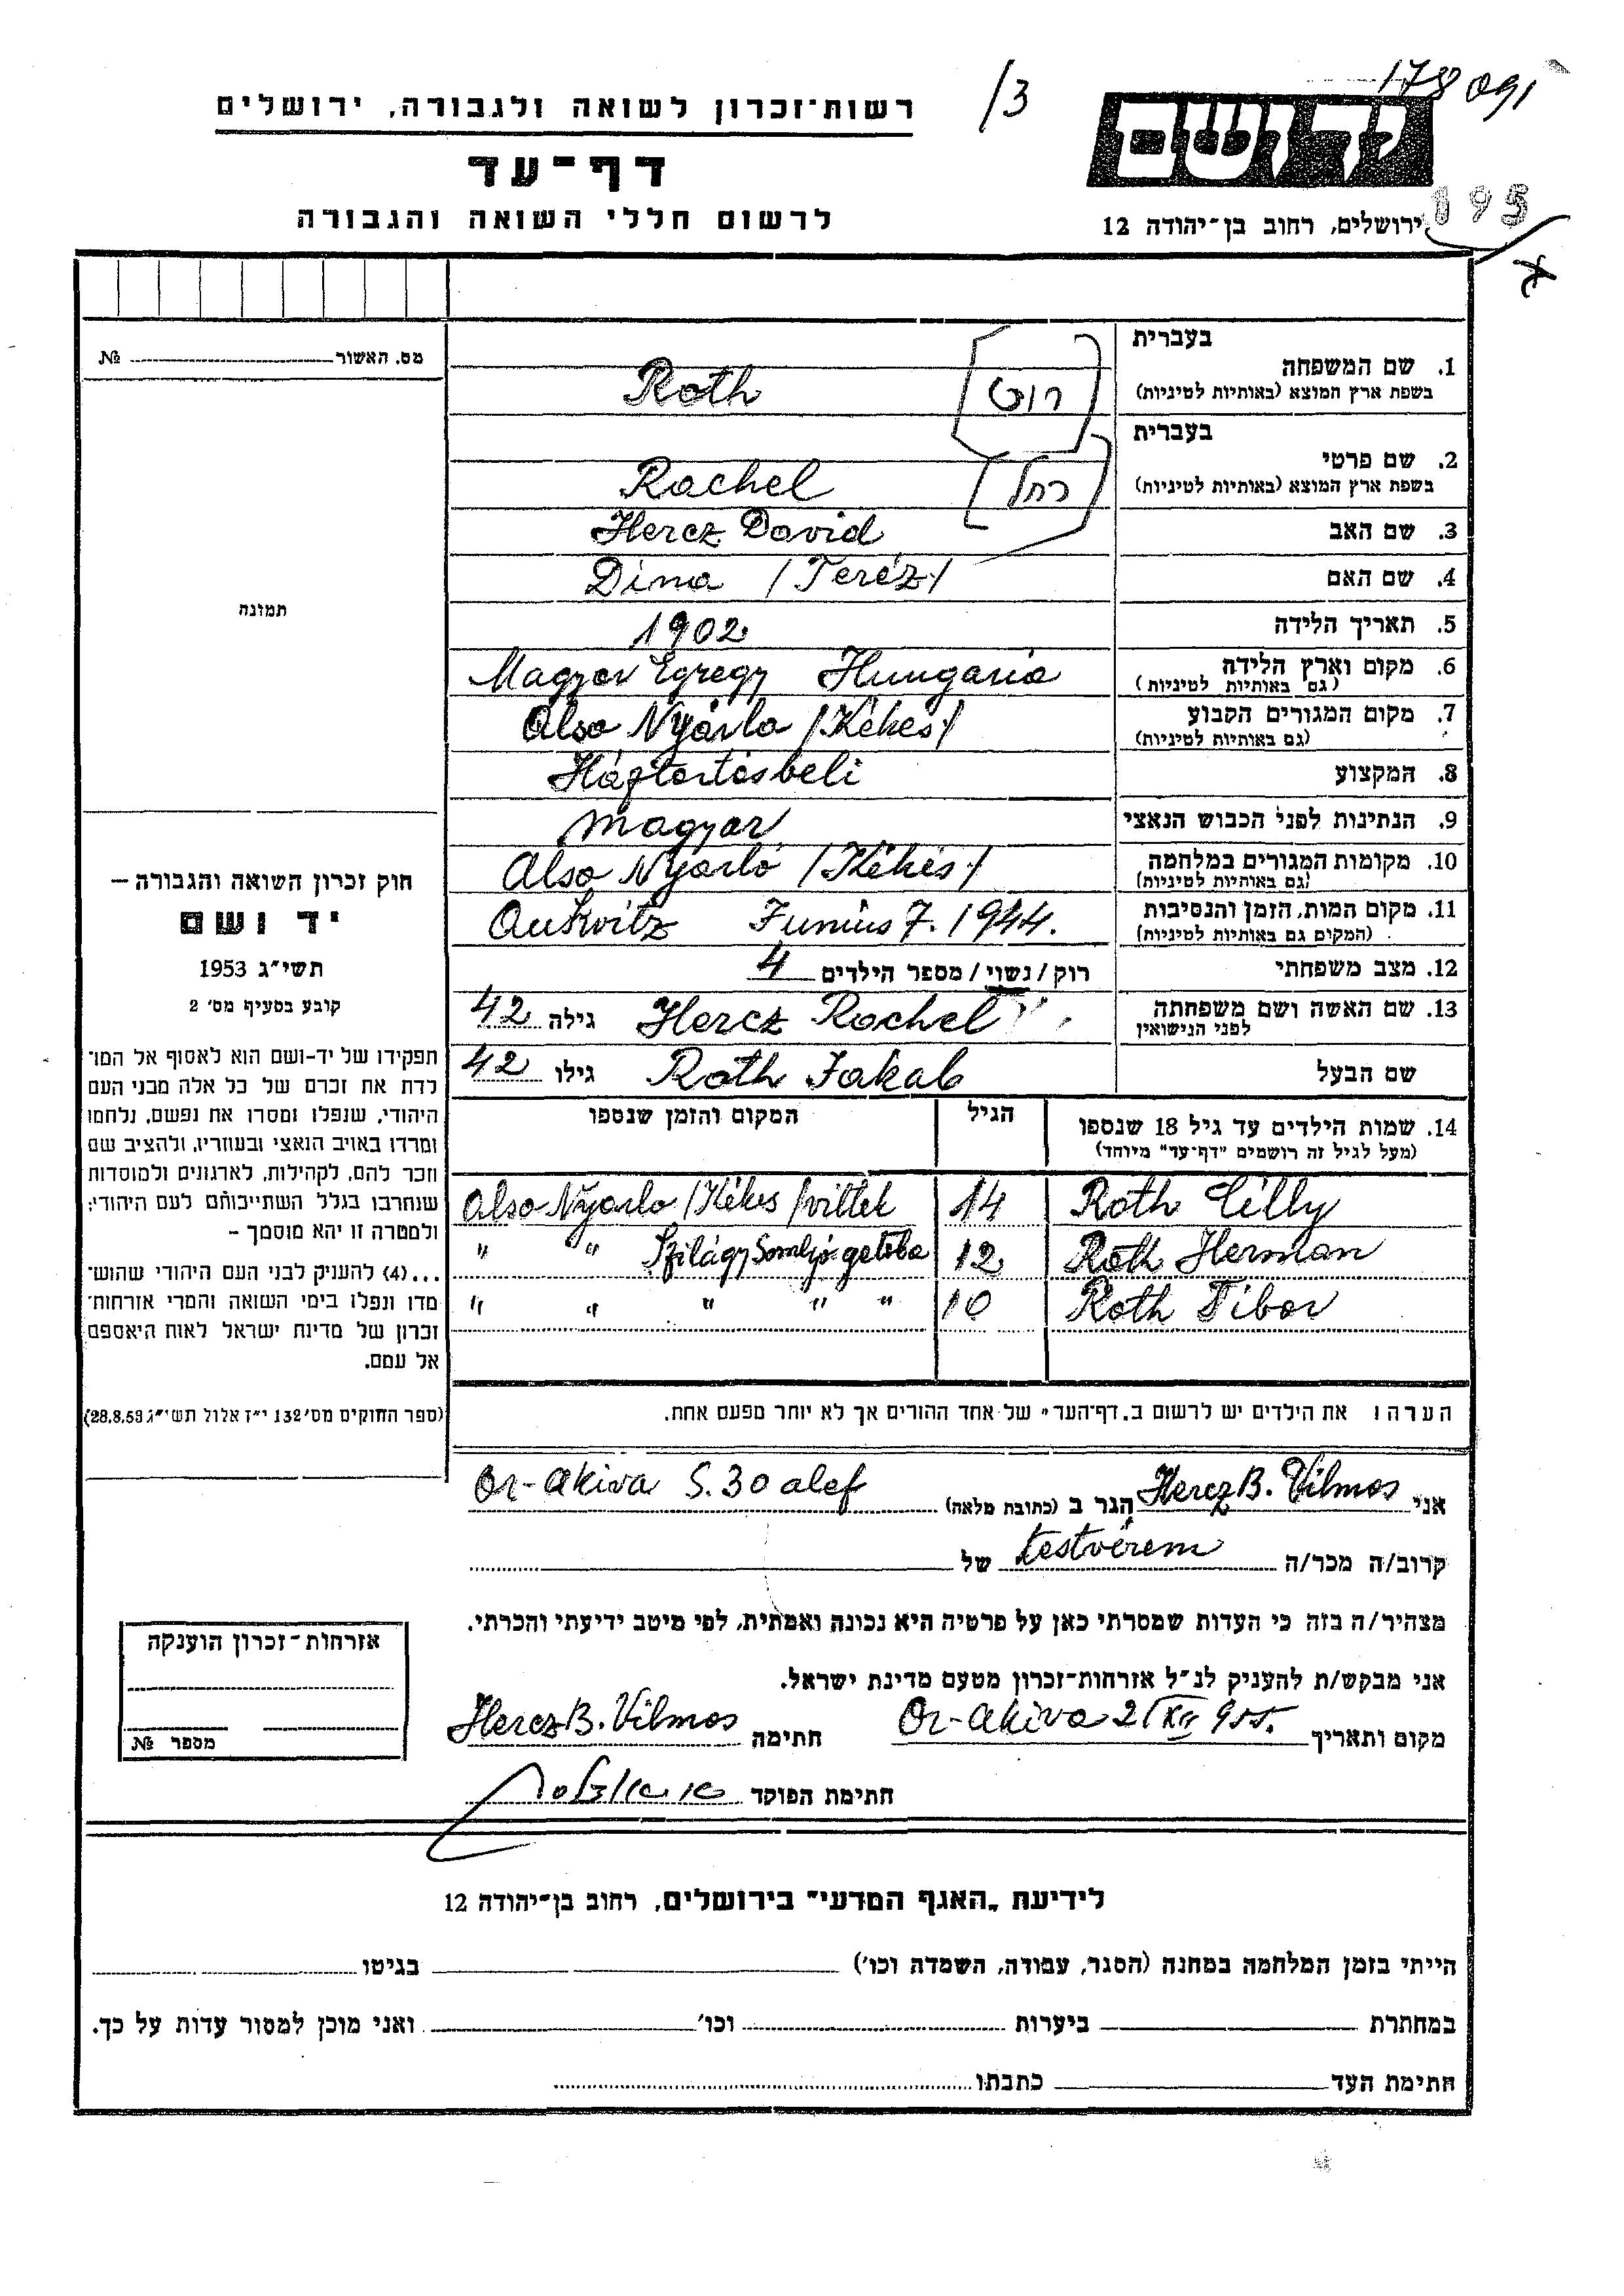 178091
/3
רשות־זכרון לשואה ולגבורה, ירושלים
יד ושם
דף־עד
195
לרשום חללי השואה והגבורה
ירושלים, רחוב בן־יהודה 12
מס. האשור № 
בעברית
1. שם המשפחה
בשפת ארץ המוצא (באותיות לטיניות)
רוט
Roth
בעברית
2. שם פרטי
בשפת ארץ המוצא (באותיות לטיניות)
רחל
Rachel
3. שם האב Hercz David
4. שם האם Dina /Teréz/
5. תאריך הלידה 1902
6. מקום וארץ הלידה Magyar Egregy Hungaria
(גם באותיות לטיניות)
7. מקום המגורים הקבוע Also Nyárlo /Kékes/
(גם באותיות לטיניות)
8. המקצוע Háztartásbeli
9. הנתינות לפני הכבוש הנאצי magyar
10. מקומות המגורים במלחמה Also Nyárló /Kékes/
(גם באותיות לטיניות)
11. מקום המות, הזמן והנסיבות Auskvitz Junius 7. 1944.
(המקום גם באותיות לטיניות)
12. מצב משפחתי רוק / נשוי / מספר הילדים 4
13. שם האשה ושם משפחתה Hercz Rachel גילה 42
לפני הנישואין
שם הבעל Roth Jakab גילו 42
14. שמות הילדים עד גיל 18 שנספו הגיל המקום והזמן שנספו
(מעל לגיל זה רושמים "דף־עד" מיוחד)
Roth Lilly 14 Also Nyarlo /Kékes/ vittek
Roth Herman 12 " " Szilágy Somlyó getoba
Roth Tibor 10 " " " " "
הערה: את הילדים יש לרשום ב„דף־העד" של אחד ההורים אך לא יותר מפעם אחת.
תמונה
חוק זכרון השואה והגבורה –
יד ושם
תשי"ג 1953
קובע בסעיף מס' 2
תפקידו של יד-ושם הוא לאסוף אל המו־
לדת את זכרם של כל אלה מבני העם
היהודי, שנפלו ומסרו את נפשם, נלחמו
ומרדו באויב הנאצי ובעוזריו, ולהציב שם
וזכר להם, לקהילות, לארגונים ולמוסדות
שנחרבו בגלל השתייכותם לעם היהודי;
ולמטרה זו יהא מוסמך –
...(4) להעניק לבני העם היהודי שהוש־
מדו ונפלו בימי השואה והמרי אזרחות־
זכרון של מדינת ישראל לאות היאספם
אל עמם.
(ספר החוקים מס' 132 י"ז אלול תשי"ג 28.8.53)
אני Hercz B. Vilmos הגר ב (כתובת מלאה) Or-Akiva S. 30 alef
קרוב/ה מכר/ה testvérem של
מצהיר/ה בזה כי העדות שמסרתי כאן על פרטיה היא נכונה ואמתית, לפי מיטב ידיעתי והכרתי.
אני מבקש/ת להעניק לנ"ל אזרחות־זכרון מטעם מדינת ישראל.
מקום ותאריך Or-Akiva 2/XII 955. חתימה Hercz B. Vilmos
חתימת הפוקד
אזרחות־זכרון הוענקה
מספר №
לידיעת „האגף המדעי" בירושלים, רחוב בן־יהודה 12
הייתי בזמן המלחמה במחנה (הסגר, עבודה, השמדה וכו') בגיטו
במחתרת ביערות וכו' ואני מוכן למסור עדות על כך.
חתימת העד כתבתו